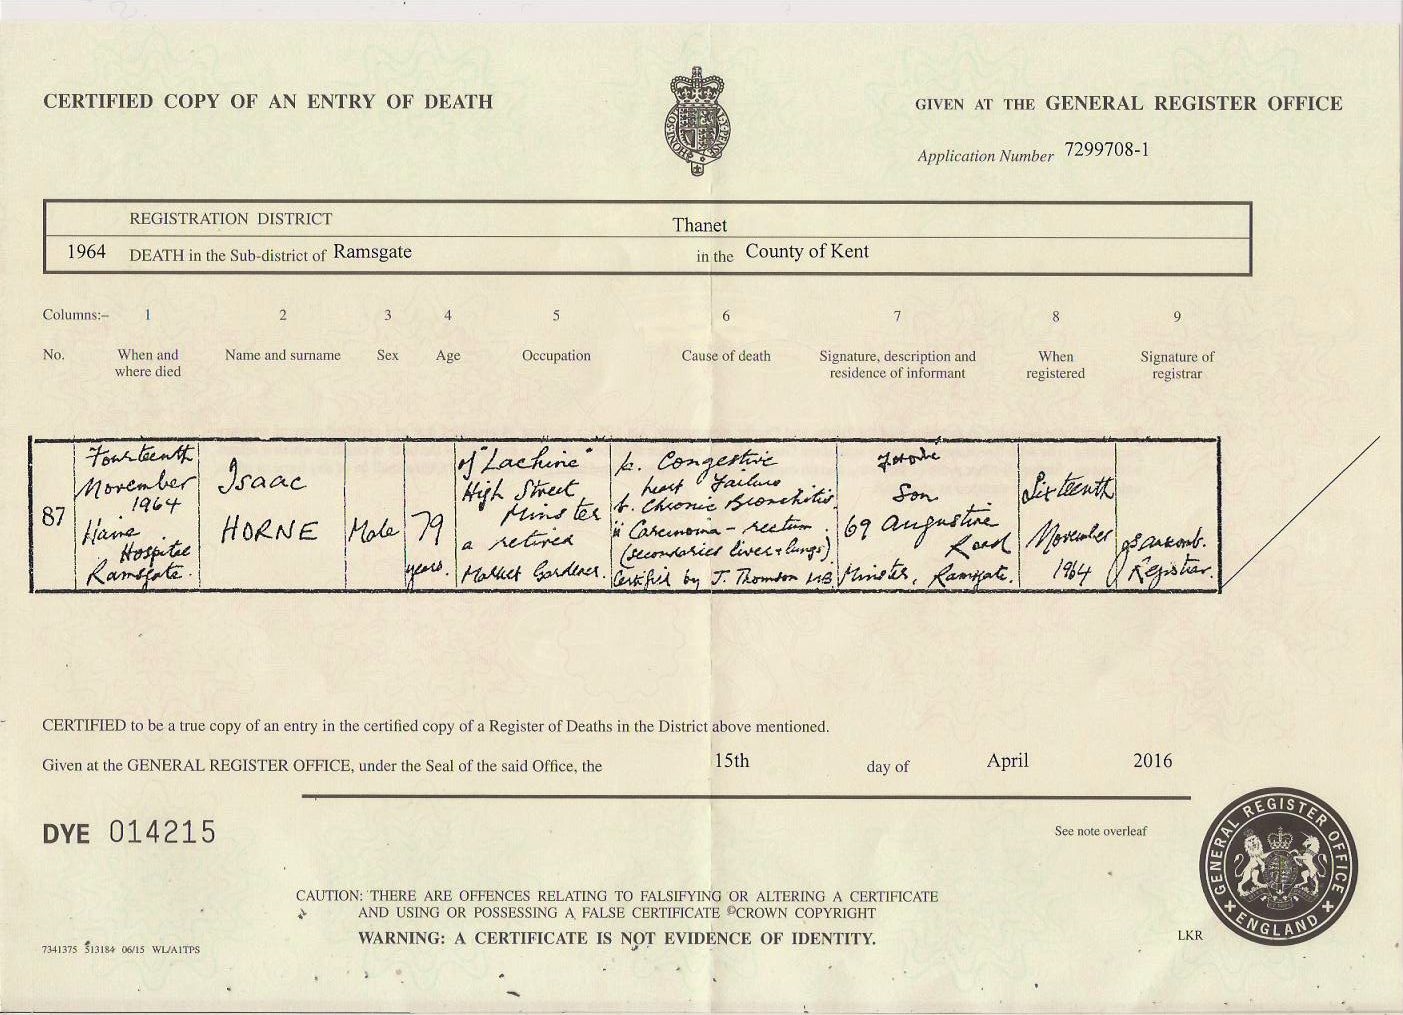 CERTIFIED COPY OF AN ENTRY OF DEATH
GIVEN AT THE GENERAL REGISTER OFFICE
Application Number 7299708-1
REGISTRATION DISTRICT Thanet
1964 DEATH in the Sub-district of Ramsgate in the County of Kent
Columns:– 1 2 3 4 5 6 7 8 9
No. When and where died Name and surname Sex Age Occupation Cause of death Signature, description and residence of informant When registered Signature of registrar
87
Fourteenth
November
1964
Haine
Hospital
Ramsgate.
Isaac
HORNE
Male
79
years.
of "Lachine"
High Street
Minster
a retired
Market Gardener.
Congestive
heart Failure
b. Chronic Bronchitis
ii Carcinoma - rectum.
(secondaries liver + lungs)
Certified by J. Thomson MB.
Son
69 Augustine
Road
Minster, Ramsgate.
Sixteenth
November
1964
Registrar.
CERTIFIED to be a true copy of an entry in the certified copy of a Register of Deaths in the District above mentioned.
Given at the GENERAL REGISTER OFFICE, under the Seal of the said Office, the 15th day of April 2016
DYE 014215
See note overleaf
CAUTION: THERE ARE OFFENCES RELATING TO FALSIFYING OR ALTERING A CERTIFICATE
AND USING OR POSSESSING A FALSE CERTIFICATE ©CROWN COPYRIGHT
WARNING: A CERTIFICATE IS NOT EVIDENCE OF IDENTITY.
GENERAL REGISTER OFFICE
ENGLAND
LKR
7341375 513184 06/15 WL/A1TPS